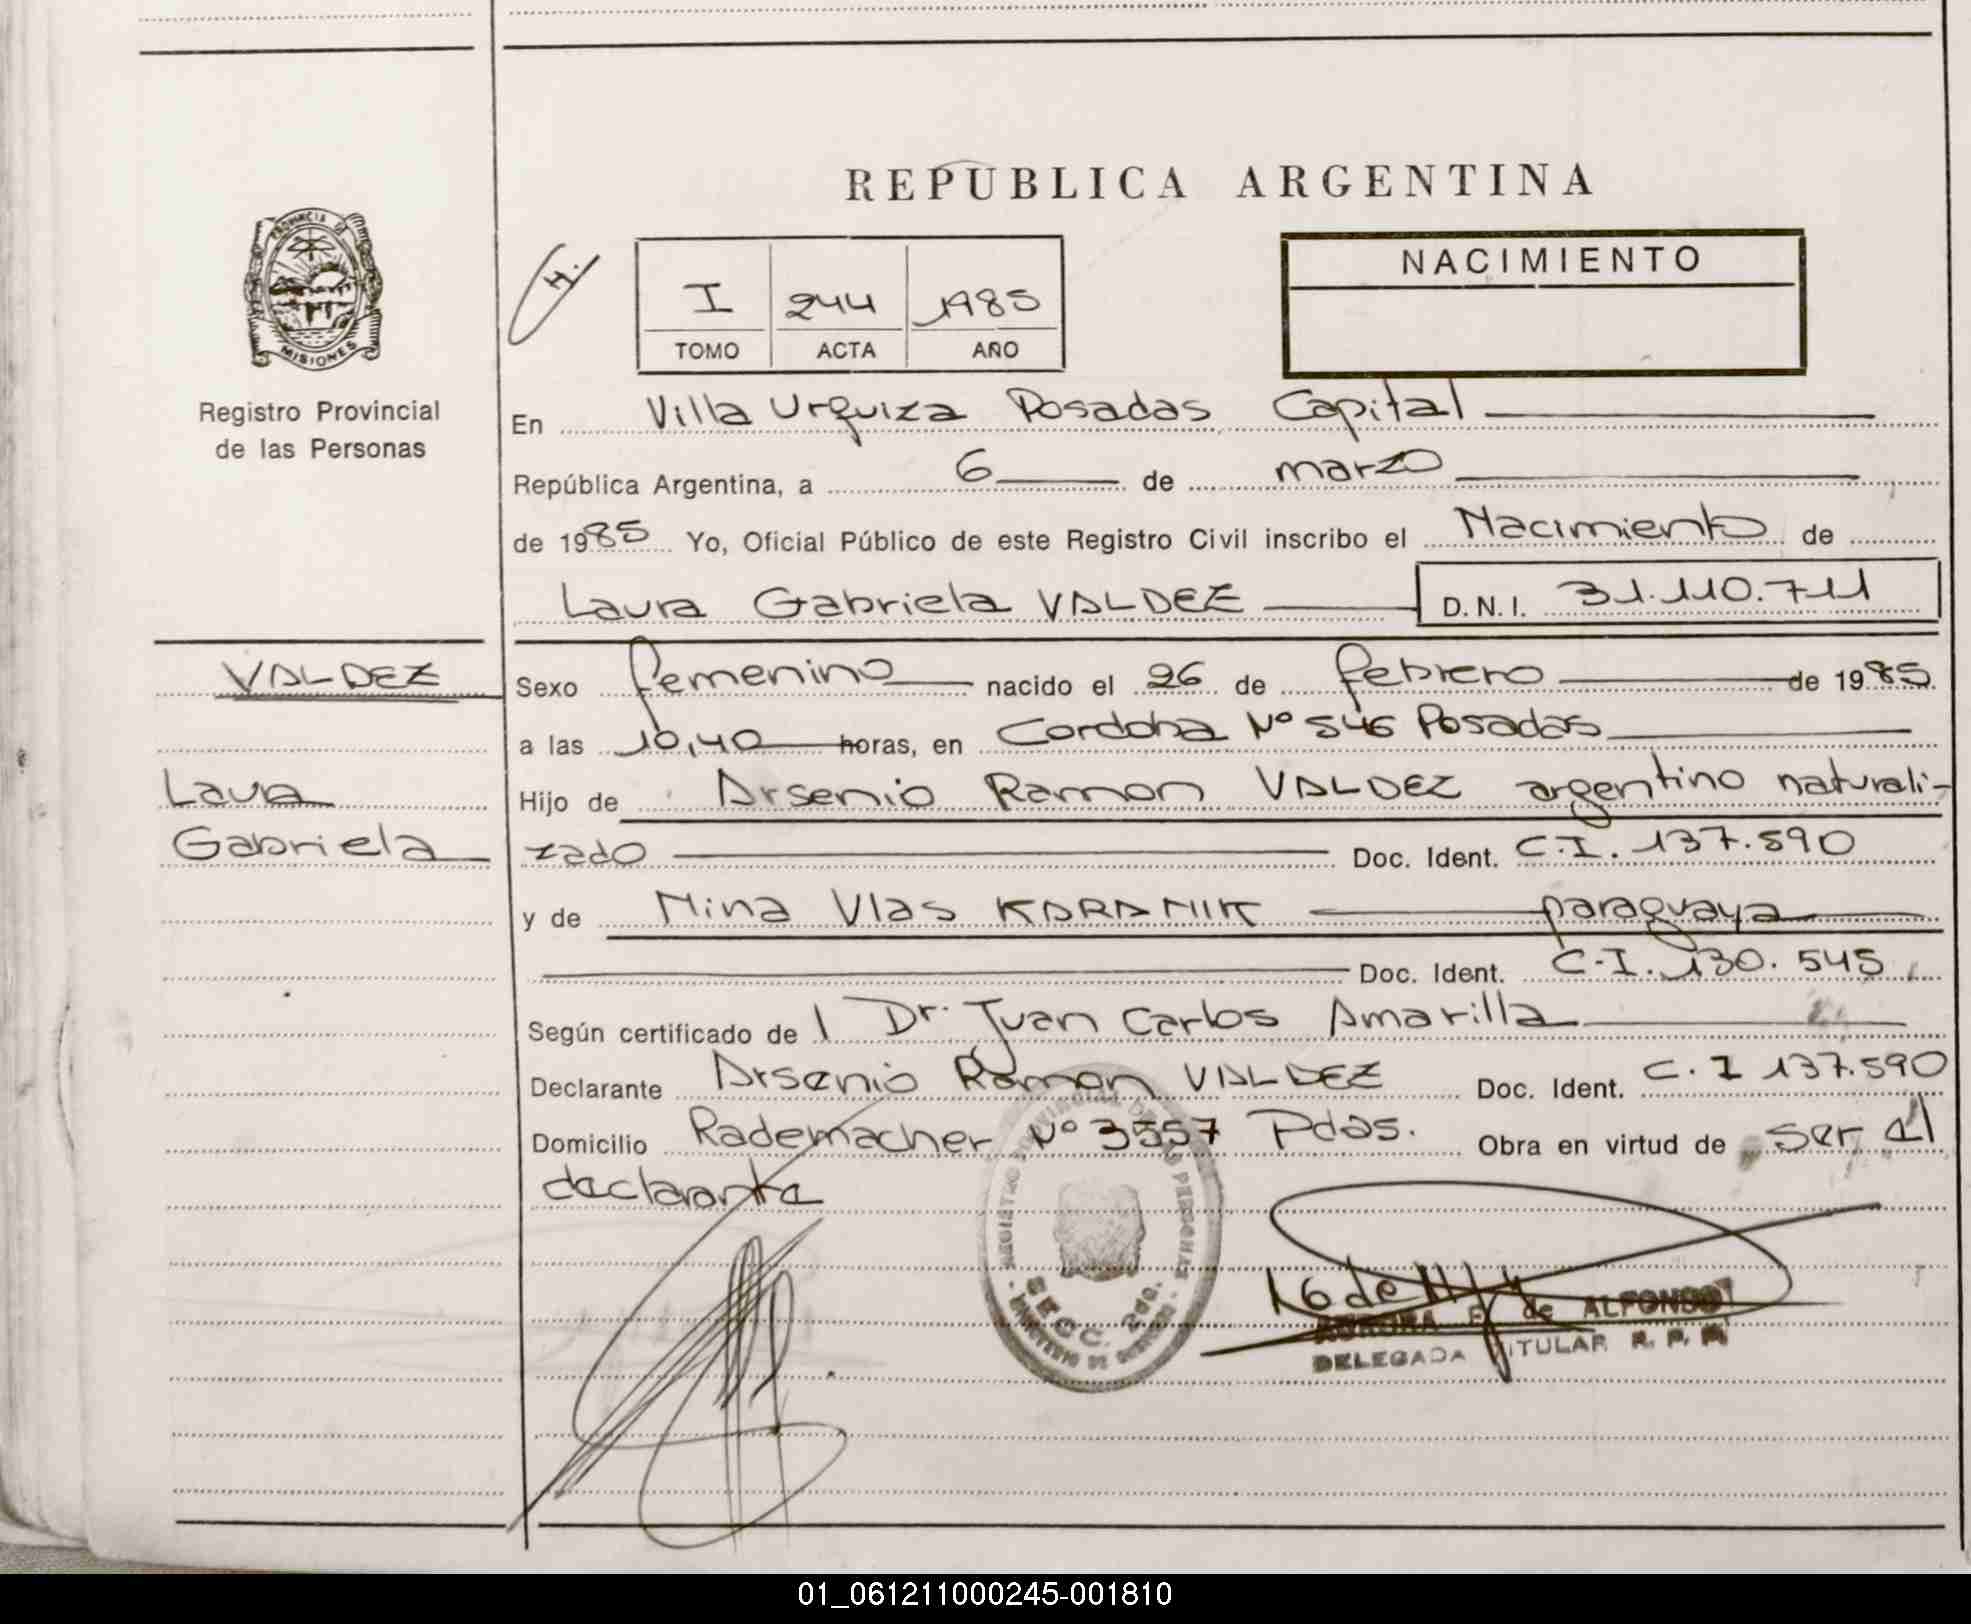 REPUBLICA ARGENTINA
PROVINCIA DE
MISIONES
Registro Provincial
de las Personas
H.
I 244 1985
TOMO ACTA AÑO
NACIMIENTO
En Villa Urquiza Posadas Capital
República Argentina, a 6 de marzo
de 1985 Yo, Oficial Público de este Registro Civil inscribo el Nacimiento de
Laura Gabriela VALDEZ D.N.I. 31.110.711
VALDEZ
Laura
Gabriela
Sexo femenino nacido el 26 de febrero de 1985
a las 10,40 horas, en Cordoba Nº 546 Posadas
Hijo de Arsenio Ramon VALDEZ argentino naturali-
zado Doc. Ident. C.I. 137.590
y de Nina Vlas KARANIK paraguaya
Doc. Ident. C.I. 130.545
Según certificado de l Dr. Juan Carlos Amarilla
Declarante Arsenio Ramon VALDEZ Doc. Ident. C.I 137.590
Domicilio Rademacher Nº 3557 Pdas. Obra en virtud de ser el
declarante
REGISTRO PROVINCIAL DE LAS PERSONAS
SECC. 2da.
MINISTERIO DE GOBIERNO
de ALFONSO
DELEGADA TITULAR R. P. P.
01_061211000245-001810